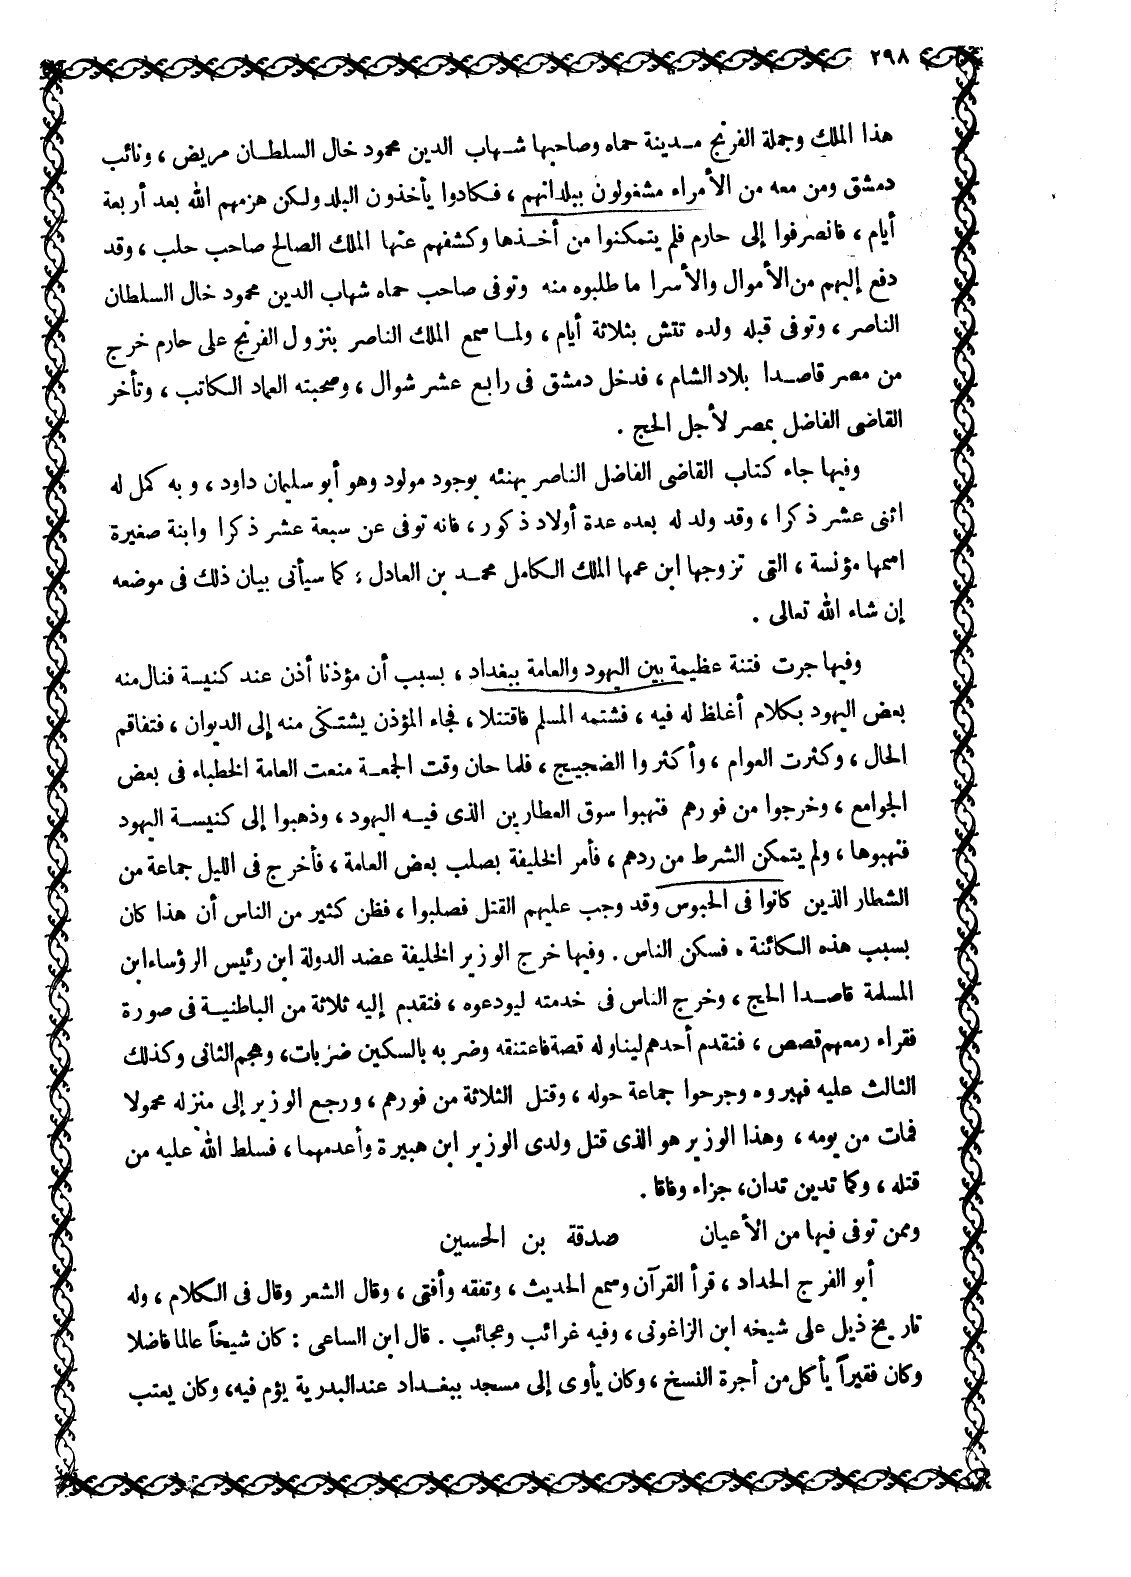 ٢٩٨
هذا الملك وجملة الفرنج مـدينة حماه وصاحبها شـهاب الدين محمود خال السلطـان مريض ، ونائب
دمشق ومن معه من الأمراء مشغولون ببلدانهم ، فـكادوا يأخذون البلد ولـكن هزمهم الله بعد أربعة
أيام ، فانصرفوا إلى حارم فلم يتمكنوا من أخـذها وكشفهم عنها الملك الصالح صاحب حلب ، وقد
دفع إليهم من الأموال والأسرا ما طلبوه منه وتوفى صاحب حماه شهاب الدين محمود خال السلطان
الناصر ، وتوفى قبله ولده تتش بثلاثة أيام ، ولمـا سمع الملك الناصر بنزول الفرنج على حارم خرج
من مصر قاصـدا بلاد الشام ، فدخل دمشق فى رابع عشر شوال ، وصحبته العماد الـكاتب ، وتأخر
القاضى الفاضل بمصر لأجل الحج .
وفيها جاء كتاب القاضى الفاضل الناصر يهنئه بوجود مولود وهو أبو سليمان داود ، وبه كمل له
اثنى عشر ذكرا ، وقد ولد له بعده عدة أولاد ذكور ، فانه توفى عن سبعة عشر ذكرا وابنة صغيرة
اسمها مؤنسة ، التى تزوجها ابن عمها الملك الـكامل محمـد بن العادل ؛ كما سيأتى بيان ذلك فى موضعه
إن شاء الله تعالى .
وفيها جرت فتنة عظيمة بين اليهود والعامة ببغداد ، بسبب أن مؤذنا أذن عند كنيسة فنال منه
بعض اليهود بكلام أغلظ له فيه ، فشتمه المسلم فاقتتلا ، فجاء المؤذن يشتـكى منه إلى الديوان ، فتفاقم
الحال ، وكثرت العوام ، وأكثروا الضجيـج ، فلما حان وقت الجمعـة منعت العامة الخطباء فى بعض
الجوامع ، وخرجوا من فورهم فنهبوا سوق العطارين الذى فيـه اليهود ، وذهبوا إلى كنيسـة اليهود
فنهبوها ، ولم يتمكن الشرط من ردهم ، فأمر الخليفة بصلب بعض العامة ، فأخرج فى الليل جماعة من
الشطار الذين كانوا فى الحبوس وقد وجب عليهم القتل فصلبوا ، فظن كثير من الناس أن هذا كان
بسبب هذه الـكائنة . فسكن الناس . وفيها خرج الوزير الخليفة عضد الدولة ابن رئيس الرؤساء ابن
المسلمة قاصـدا الحج ، وخرج الناس فى خدمته ليودعوه ، فتقدم إليه ثلاثة من الباطنيـة فى صورة
فقراء ومعهم قصص ، فتقدم أحدهم ليناوله قصة فاعتنقه وضربه بالسكين ضربات، وهجم الثانى وكذلك
الثالث عليه فهبروه وجرحوا جماعة حوله ، وقتل الثلاثة من فورهم ، ورجع الوزير إلى منزله محمولا
فمات من يومه ، وهذا الوزير هو الذى قتل ولدى الوزير ابن هبيرة وأعدمهما ، فسلط الله عليه من
قتله ، وكما تدين تدان، جزاء وفاقا .
وممن توفى فيها من الأعيان صدقة بن الحسين
أبو الفرج الحداد ، قرأ القرآن وسمع الحديث ، وتفقه وأفتى ، وقال الشعر وقال فى الـكلام ، وله
تاريخ ذيل على شيخه ابن الزاغونى ، وفيه غرائب وعجائب . قال ابن الساعى : كان شيخاً عالما فاضلا
وكان فقيراً يأكل من أجرة النسخ ، وكان يأوى إلى مسجد ببغـداد عند البدرية يؤم فيه، وكان يعتب